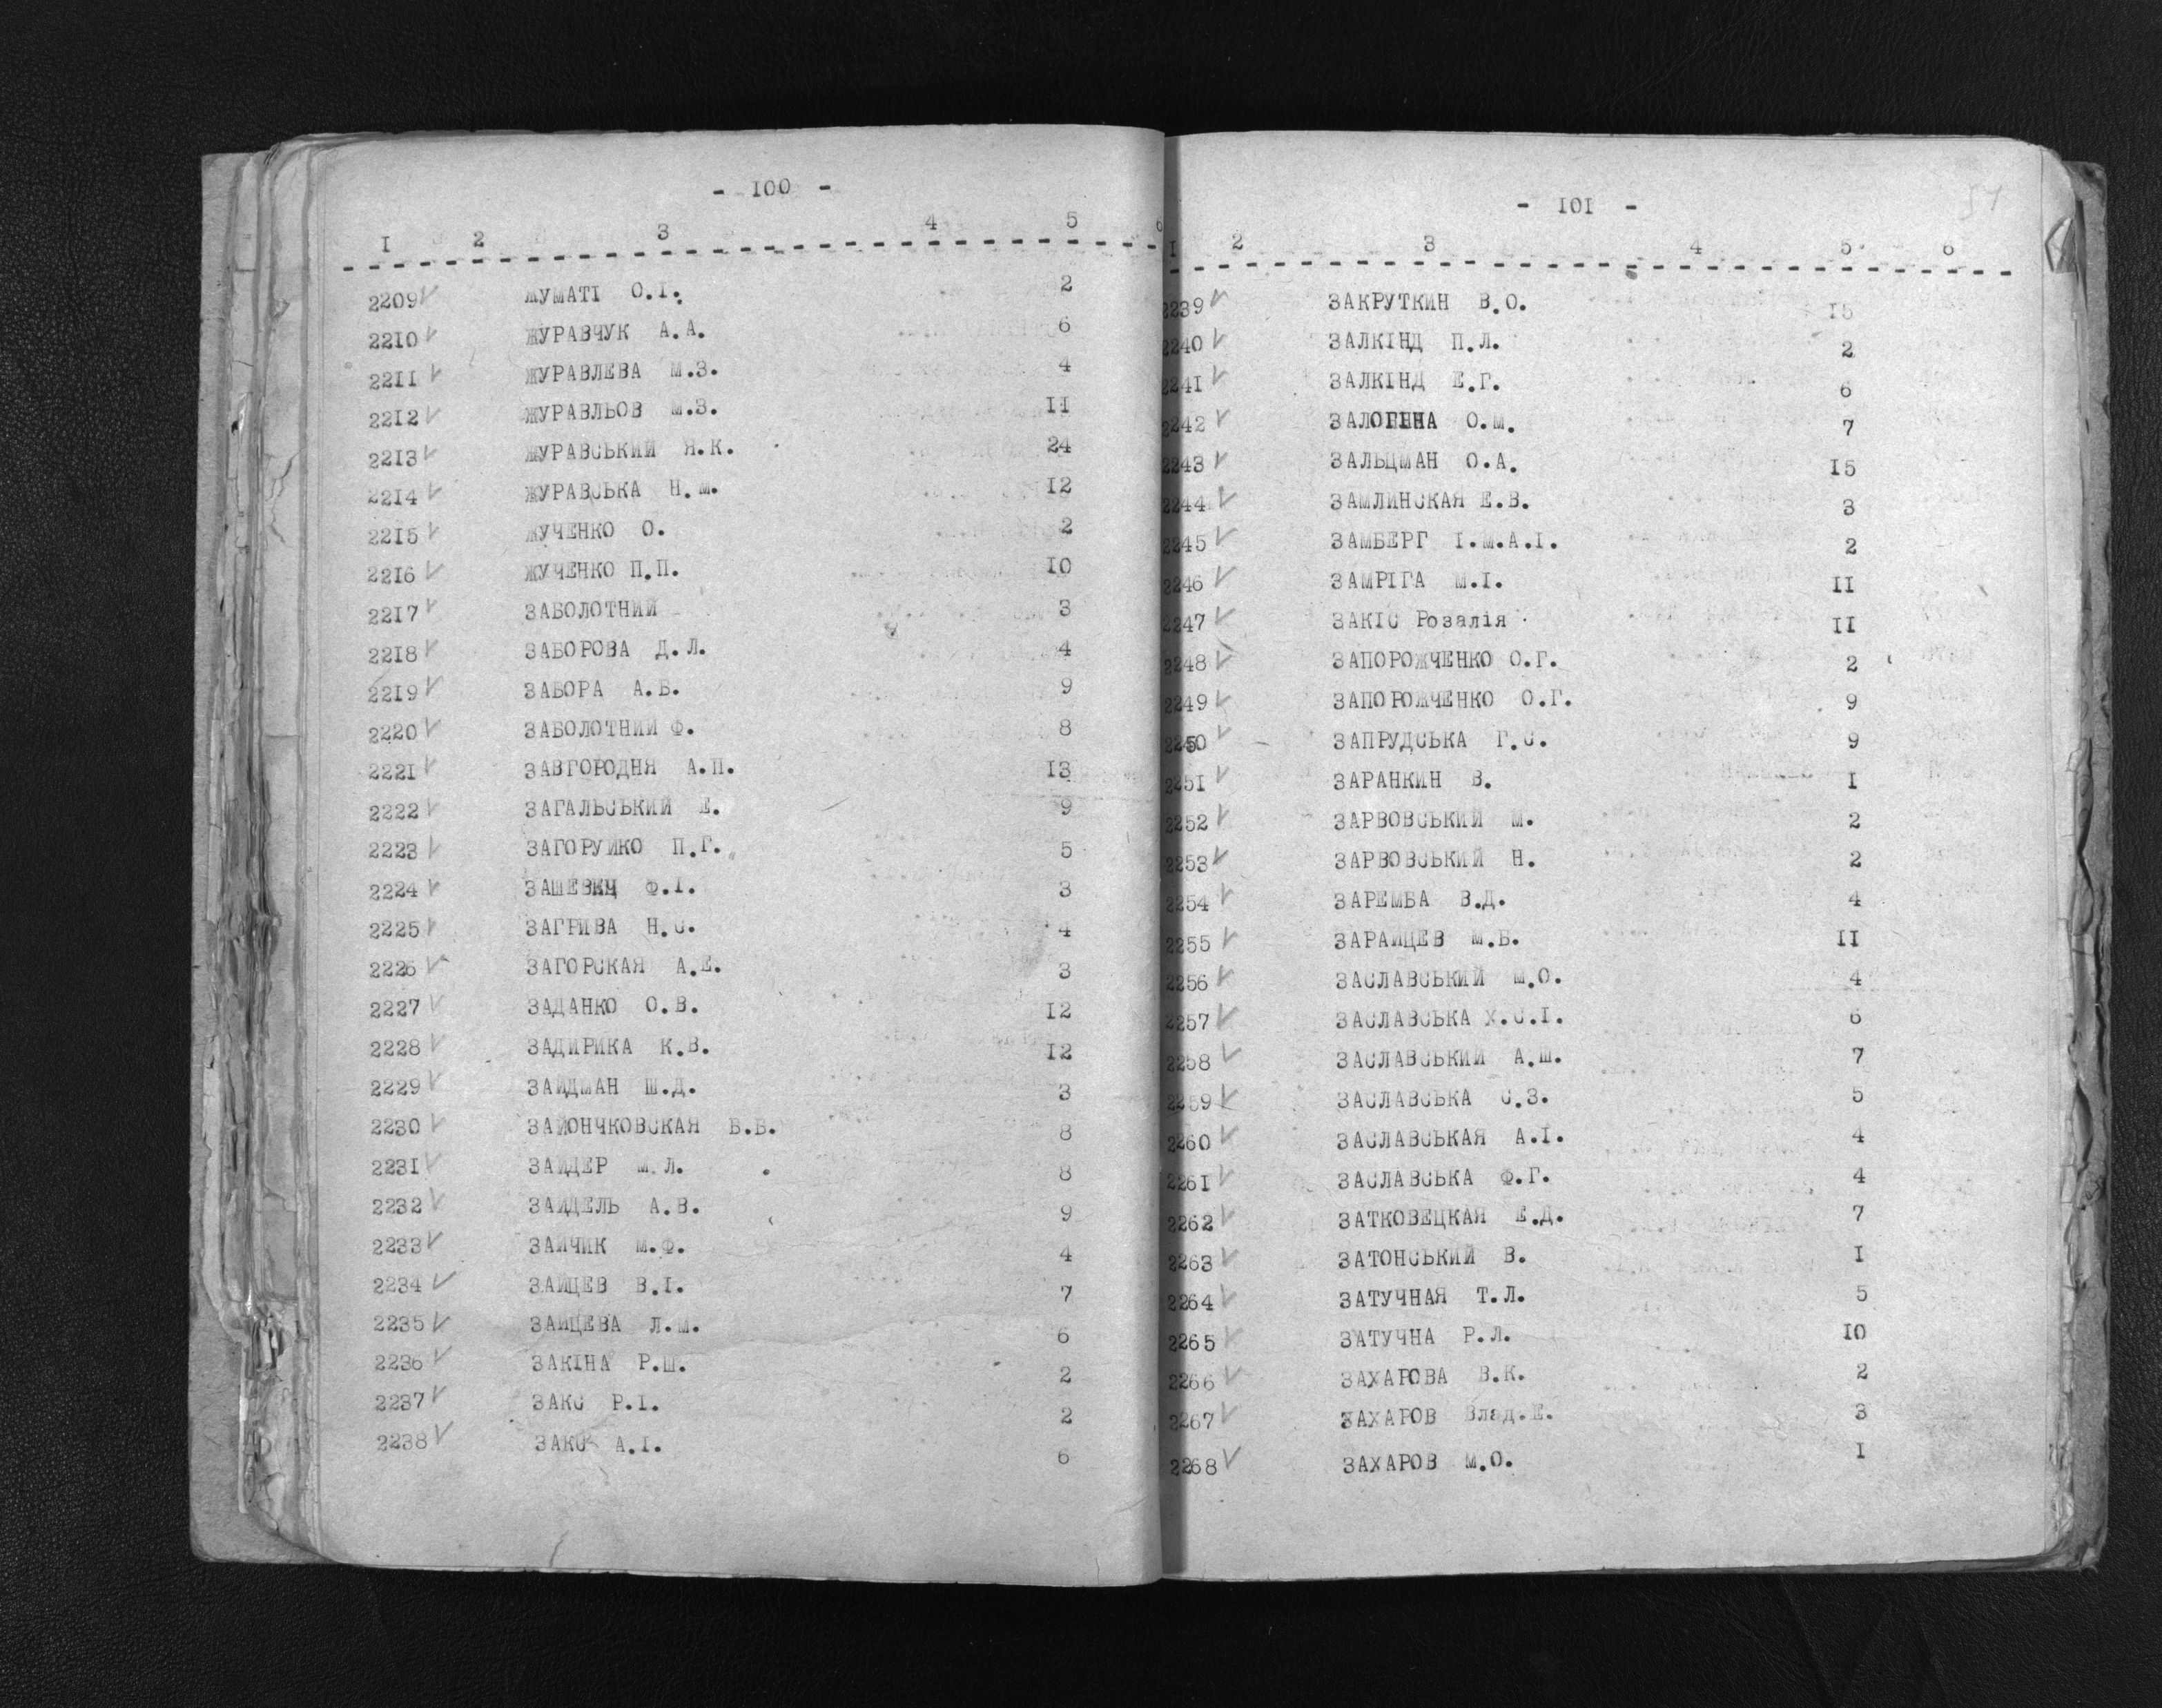 - 100 -
I 2 3 4 5 6
2209 ЖУМАТІ О.І. 2
2210 ЖУРАВЧУК А.А. 6
2211 ЖУРАВЛЕВА М.З. 4
2212 ЖУРАВЛЬОВ М.З. II
2213 ЖУРАВСЬКИЙ Я.К. 24
2214 ЖУРАВСЬКА Н.М. I2
2215 ЖУЧЕНКО О. 2
2216 ЖУЧЕНКО П.П. IO
2217 ЗАБОЛОТНИЙ 3
2218 ЗАБОРОВА Д.Л. 4
2219 ЗАБОРА А.Б. 9
2220 ЗАБОЛОТНИЙ Ф. 8
2221 ЗАВГОРОДНЯ А.П. I3
2222 ЗАГАЛЬСЬКИЙ Е. 9
2223 ЗАГОРУЙКО П.Г. 5
2224 ЗАШЕВИЧ Ф.І. 3
2225 ЗАГРИВА Н.С. 4
2226 ЗАГОРСКАЯ А.Е. 3
2227 ЗАДАНКО О.В. I2
2228 ЗАДИРИКА К.В. I2
2229 ЗАЙДМАН Ш.Д. 3
2230 ЗАЙОНЧКОВСКАЯ Б.В. 8
2231 ЗАЙДЕР М.Л. 8
2232 ЗАЙДЕЛЬ А.В. 9
2233 ЗАЙЧИК М.Ф. 4
2234 ЗАЙЦЕВ В.І. 7
2235 ЗАЙЦЕВА Л.М. 6
2236 ЗАКІНА Р.Ш. 2
2237 ЗАКС Р.І. 2
2238 ЗАКС А.І. 6
- 101 -
I 2 3 4 5 6
2239 ЗАКРУТКИН В.О. I5
2240 ЗАЛКІНД П.Л. 2
2241 ЗАЛКІНД Е.Г. 6
2242 ЗАЛОГІНА О.М. 7
2243 ЗАЛЬЦМАН О.А. I5
2244 ЗАМЛИНСКАЯ Е.В. 3
2245 ЗАМБЕРГ І.М.А.І. 2
2246 ЗАМРІГА М.І. II
2247 ЗАКІС Розалія II
2248 ЗАПОРОЖЧЕНКО О.Г. 2
2249 ЗАПОРОЖЧЕНКО О.Г. 9
2250 ЗАПРУДСЬКА Г.С. 9
2251 ЗАРАНКИН В. I
2252 ЗАРВОВСЬКИЙ М. 2
2253 ЗАРВОВСЬКИЙ Н. 2
2254 ЗАРЕМБА В.Д. 4
2255 ЗАРАЙЦЕВ М.Б. II
2256 ЗАСЛАВСЬКИЙ М.О. 4
2257 ЗАСЛАВСЬКА Х.С.І. 6
2258 ЗАСЛАВСЬКИЙ А.Ш. 7
2259 ЗАСЛАВСЬКА С.З. 5
2260 ЗАСЛАВСЬКАЯ А.І. 4
2261 ЗАСЛАВСЬКА Ф.Г. 4
2262 ЗАТКОВЕЦКАЯ Е.Д. 7
2263 ЗАТОНСЬКИЙ В. I
2264 ЗАТУЧНАЯ Т.Л. 5
2265 ЗАТУЧНА Р.Л. IO
2266 ЗАХАРОВА В.К. 2
2267 ЗАХАРОВ Влад.Е. 3
2268 ЗАХАРОВ М.О. I